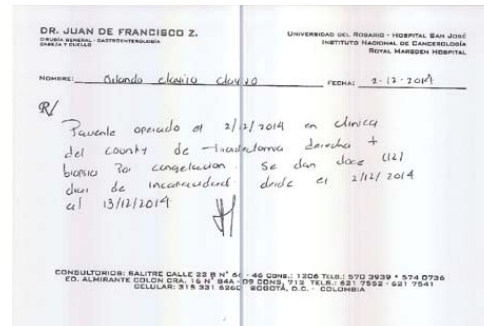 DR. JUAN DE FRANCISCO Z.
CIRUGÍA GENERAL - GASTROENTEROLOGÍA
CABEZA Y CUELLO
UNIVERSIDAD DEL ROSARIO - HOSPITAL SAN JOSÉ
INSTITUTO NACIONAL DE CANCEROLOGÍA
ROYAL MARSDEN HOSPITAL
NOMBRE: Orlando clavijo clavijo
FECHA: 2-12-2014
R/
Paciente operado el 2/12/2014 en clinica
del county de tiroidectomia derecha +
biopsia por congelacion. Se dan doce (12)
dias de incapacidad desde el 2/12/2014
al 13/12/2014
CONSULTORIOS: SALITRE CALLE 22 B N° 66 - 46 CONS.: 1206 TELS.: 570 3939 * 574 0736
ED. ALMIRANTE COLON CRA. 16 N° 84A - 09 CONS. 712 TELS.: 621 7552 - 621 7541
CELULAR: 315 331 6260 BOGOTÁ, D.C. - COLOMBIA